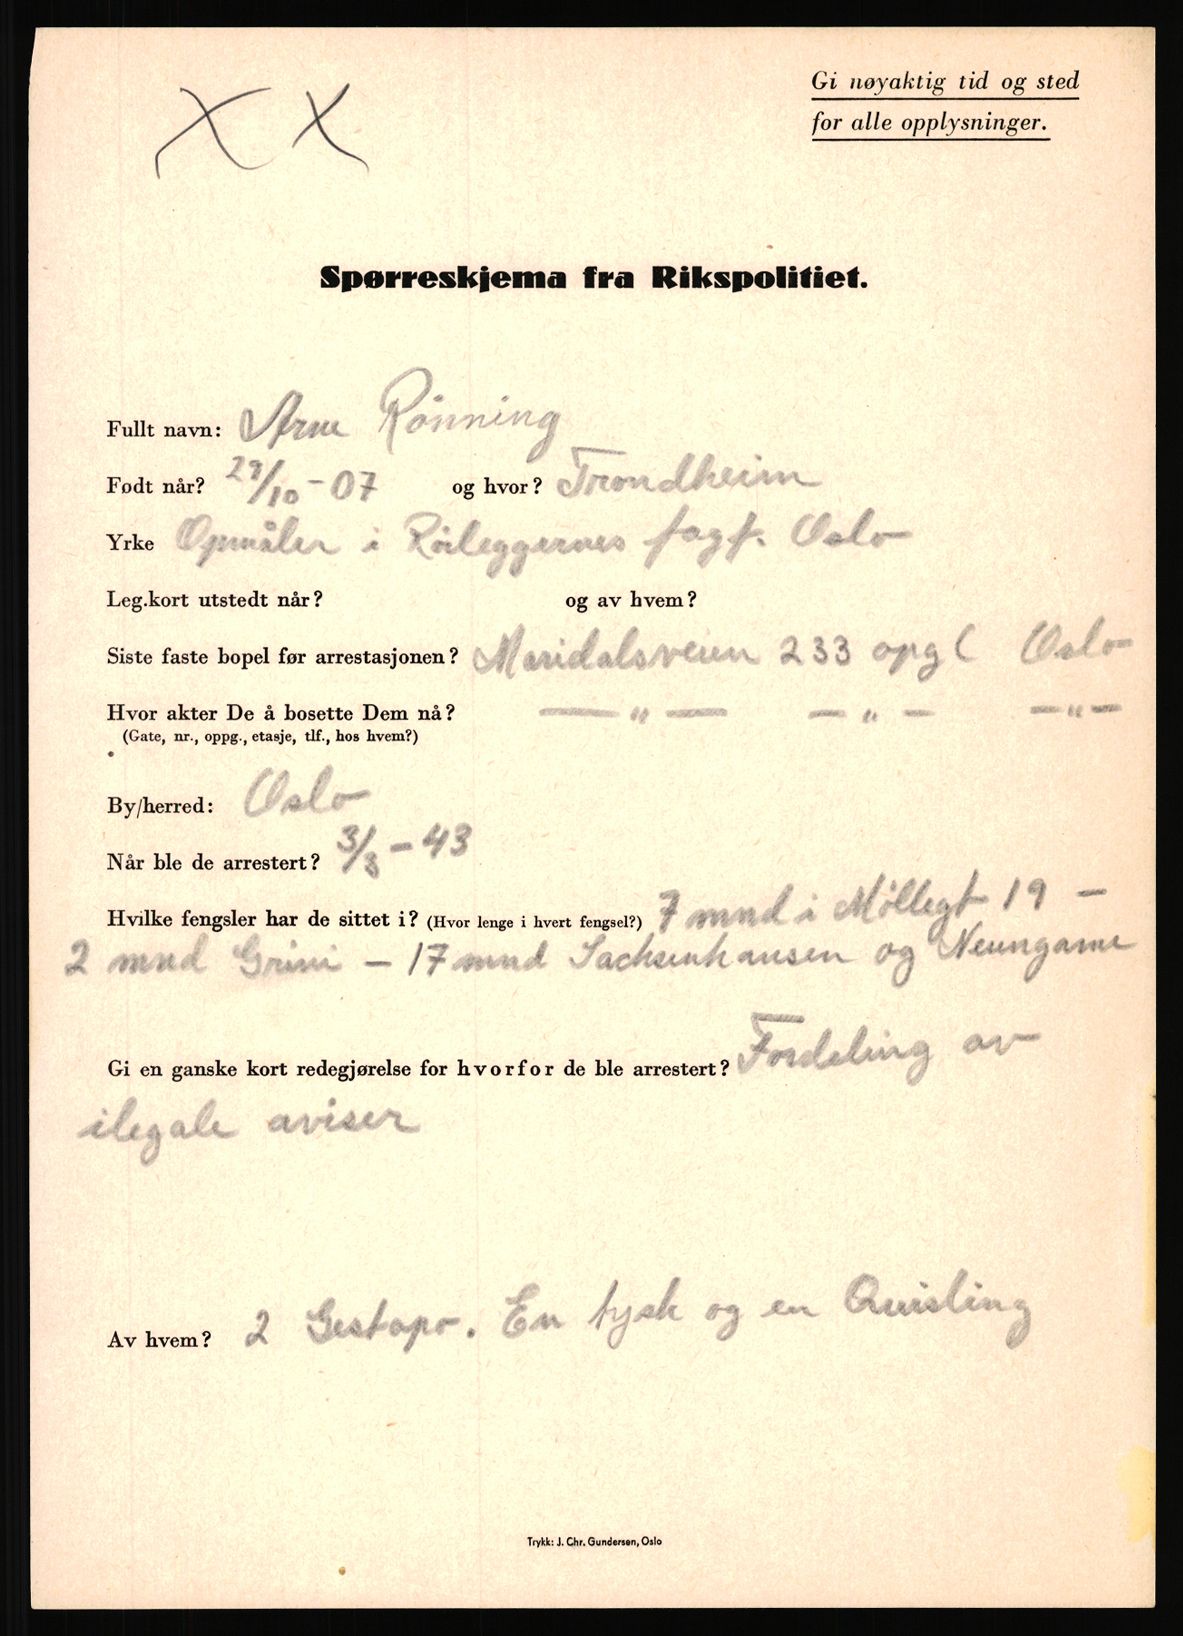 XX
Gi nøyaktig tid og sted
for alle opplysninger.
Spørreskjema fra Rikspolitiet.
Fullt navn: Arne Rönning
Født når? 29/10-07 og hvor? Trondheim
Yrke Opmåler i Rörleggernes fagf. Oslo
Leg.kort utstedt når? og av hvem?
Siste faste bopel før arrestasjonen? Maridalsveien 233 opg C Oslo
Hvor akter De å bosette Dem nå? — " — — " — — " —
(Gate, nr., oppg., etasje, tlf., hos hvem?)
By/herred: Oslo
Når ble de arrestert? 3/3-43
Hvilke fengsler har de sittet i? (Hvor lenge i hvert fengsel?) 7 mnd i Møllegt 19 —
2 mnd Grini — 17 mnd Sachsenhausen og Neungame
Gi en ganske kort redegjørelse for hvorfor de ble arrestert? Fordeling av
ilegale aviser
Av hvem? 2 Gestapo. En tysk og en Quisling
Trykk: J. Chr. Gundersen, Oslo